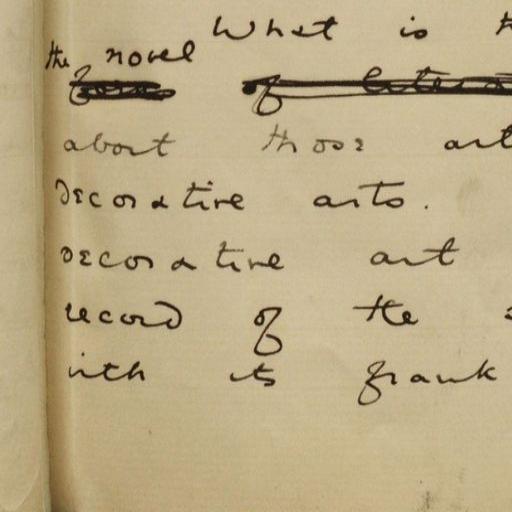 What is
the novel
of
about those art
decorative arts.
decorative art
record of the
with its frank